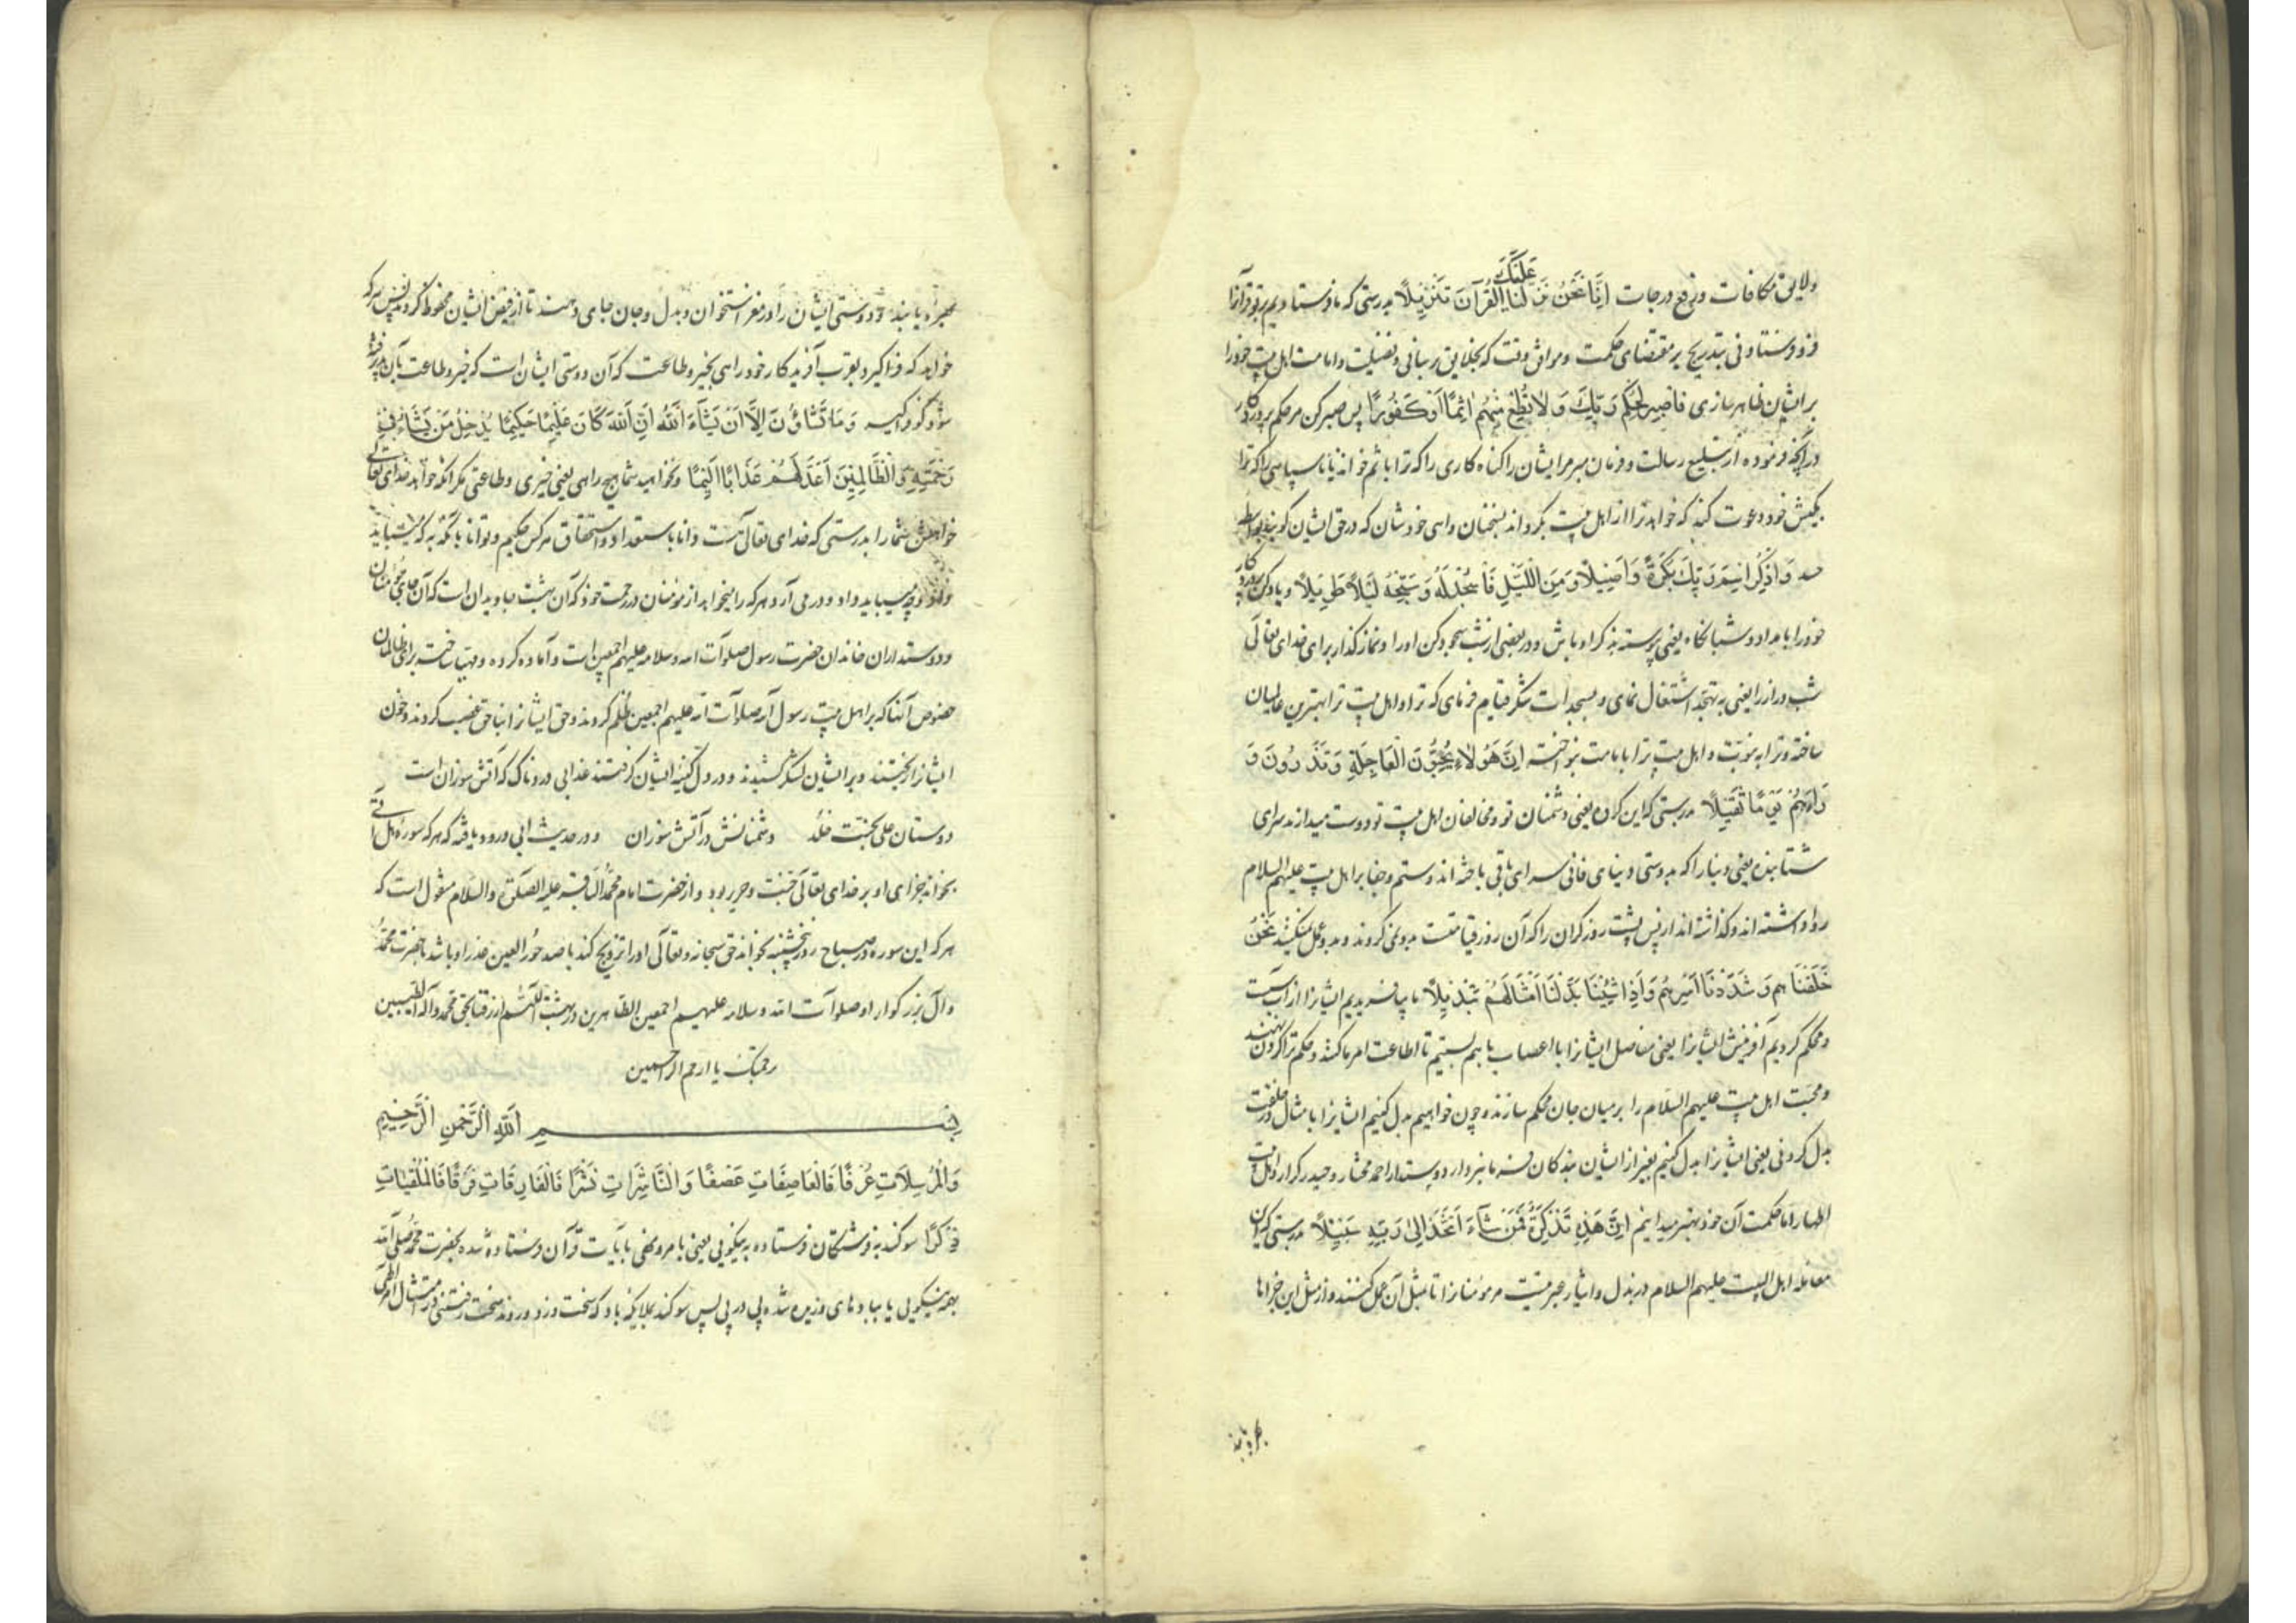 ولایق مکافات ورفع درجات اِنَّا نَحْنُ نَزَّلْنَا عَلَیْکَ الْقُرْآنَ تَنْزِیلًا بدرستی که ما فرستادیم بر تو قرآنرا
فرو فرستادنی بتدریج بر مقتضای حکمت و موافق وقت که بخلایق رسانی و فضیلت و امامت اهل بیت خود را
بر ایشان ظاهر سازی فَاصْبِرْ لِحُکْمِ رَبِّکَ وَلَا تُطِعْ مِنْهُمْ اٰثِمًا اَوْ کَفُورًا پس صبر کن مر حکم پروردکار
در آنچه فرموده از تبلیغ رسالت و فرمان مبر مر ایشان را کناه کاری را که ترا باثم خواند یا ناسپاسی را که ترا
بکیش خود دعوت کند که خواهد ترا از اهل بیت بکرداند بسخنان واهی خودشان که در حق ایشان کویند بواسطه
حسد وَاذْکُرِ اسْمَ رَبِّکَ بُکْرَةً وَاَصِیلًا وَمِنَ اللَّیْلِ فَاسْجُدْ لَهُ وَسَبِّحْهُ لَیْلًا طَوِیلًا و یاد کن پروردکار
خود را بامداد و شبانکاه یعنی پیوسته بذکر او باش و در بعضی از شب سجود کن او را و نماز کذار برای خدای تعالی
شب دراز را یعنی به تهجد اشتغال نمای و بسجدات شکر قیام فرمای که ترا و اهل بیت ترا بهترین عالمیان
ساخته و ترا به نبوّت و اهل بیت ترا بامامت بنواخته اِنَّ هٰؤُلَاءِ یُحِبُّونَ الْعَاجِلَةَ وَیَذَرُونَ وَ
رَاءَهُمْ یَوْمًا ثَقِیلًا بدرستی که این کروه یعنی دشمنان تو و مخالفان اهل بیت تو دوست میدارند سرای
شتابنده یعنی دنیا را که بدوستی دنیای فانی سرای باقی باخته اند و ستم و جفا بر اهل بیت علیهم السلام
روا داشته اند و کذاشته اند از پس پشت روز کران را که آن روز قیامتست بدو نمی کروند و بدو عمل نمیکنند نَحْنُ
خَلَقْنَاهُمْ وَشَدَدْنَا اَسْرَهُمْ وَاِذَا شِئْنَا بَدَّلْنَا اَمْثَالَهُمْ تَبْدِیلًا ما بیافریدیم ایشانرا از آب
و محکم کردیم آفرینش ایشانرا یعنی مفاصل ایشانرا با اعصاب با هم بستیم تا اطاعت امر ما کنند و حکم ترا کردن نهند
و محبت اهل بیت علیهم السلام را بر میان جان محکم سازند و چون خواهیم بدل کنیم ایشانرا بامثال در خلقت
بدل کردنی یعنی ایشانرا بدل کنیم بغیر از ایشان بندکان فرمانبردار دوستدار احمد مختار و حیدر کرار و اهل بیت
اطهار اما حکمت آن خود بهتر میدانیم اِنَّ هٰذِهِ تَذْکِرَةٌ فَمَنْ شَاءَ اتَّخَذَ اِلٰی رَبِّهِ سَبِیلًا بدرستی که این
معامله اهل البیت علیهم السلام در بذل و ایثار عبرتیست مر مؤمنانرا تا مثل آن عمل کنند و از مثل این جزاها
بهره یابند
بهره یابند و دوستی ایشان را در مغز استخوان و بدل و جان جای دهند تا از فیض ایشان محظوظ کردند پس هر که
خواهد که فرا کیرد بقرب آفریدکار خود راهی بخیر و طاعت که آن دوستی ایشان است که خیر و طاعت بآن پذیرفته
شود کو فرا کیر وَمَا تَشَاؤُنَ اِلَّا اَنْ یَشَاءَ اللّٰهُ اِنَّ اللّٰهَ کَانَ عَلِیمًا حَکِیمًا یُدْخِلُ مَنْ یَشَاءُ فِی
رَحْمَتِهِ وَالظَّالِمِینَ اَعَدَّ لَهُمْ عَذَابًا اَلِیمًا و نخواهید شما هیچ راهی یعنی خیری و طاعتی مکر آنکه خواهد خدای تعالی
خواهش شما را بدرستی که خدای تعالی هست دانا باستعداد و استحقاق هر کس حکیم و توانا بآنکه به که میباید
داد و چه میباید داد و در می آرد هر که را میخواهد از مؤمنان در رحمت خود که آن بهشت جاویدان است که آن جای محبان
و دوستداران خاندان حضرت رسول صلوات الله وسلامه علیهم اجمعین است و آماده کرده و مهیا ساخته برای ظالمان
خصوص آنها که بر اهل بیت رسول الله صلوات الله علیهم اجمعین ظلم کردند و حق ایشانرا بناحق غصب کردند و خون
ایشانرا ریختند و بر ایشان لشکر کشیدند و در دل کینه ایشان کرفتند عذابی دردناک که آتش سوزان است
دوستان علی بجنت خلد     دشمنانش در آتش سوزان     و در حدیث ابی ورود یافته که هر که سوره هل اتی
بخواند جزای او بر خدای تعالی جنت و حریر بود و از حضرت امام محمد الباقر علیه الصلوة والسلام منقول است که
هر که این سوره در صباح روز پنجشنبه بخواند حق سبحانه و تعالی او را تزویج کند با صد حور العین عذرا و باشد با حضرت محمد
و آل بزرکوار او صلوات الله وسلامه علیهم اجمعین الطاهرین در بهشت اللهم ارزقنا بحق محمد وآله الطیبین
برحمتک یا ارحم الراحمین
بِسْمِ اللّٰهِ الرَّحْمٰنِ الرَّحِیمِ
وَالْمُرْسَلَاتِ عُرْفًا فَالْعَاصِفَاتِ عَصْفًا وَالنَّاشِرَاتِ نَشْرًا فَالْفَارِقَاتِ فَرْقًا فَالْمُلْقِیَاتِ
ذِکْرًا سوکند به فرشتکان فرستاده به نیکویی یعنی بامر و نهی یا بآیات قرآن فرستاده شده بحضرت محمد صلی الله
بهمه نیکویی یا ببادهای وزیده شده پی در پی پس سوکند بملایکه باد که سخت وزد و روند سخت رفتنی در امتثال امر الهی